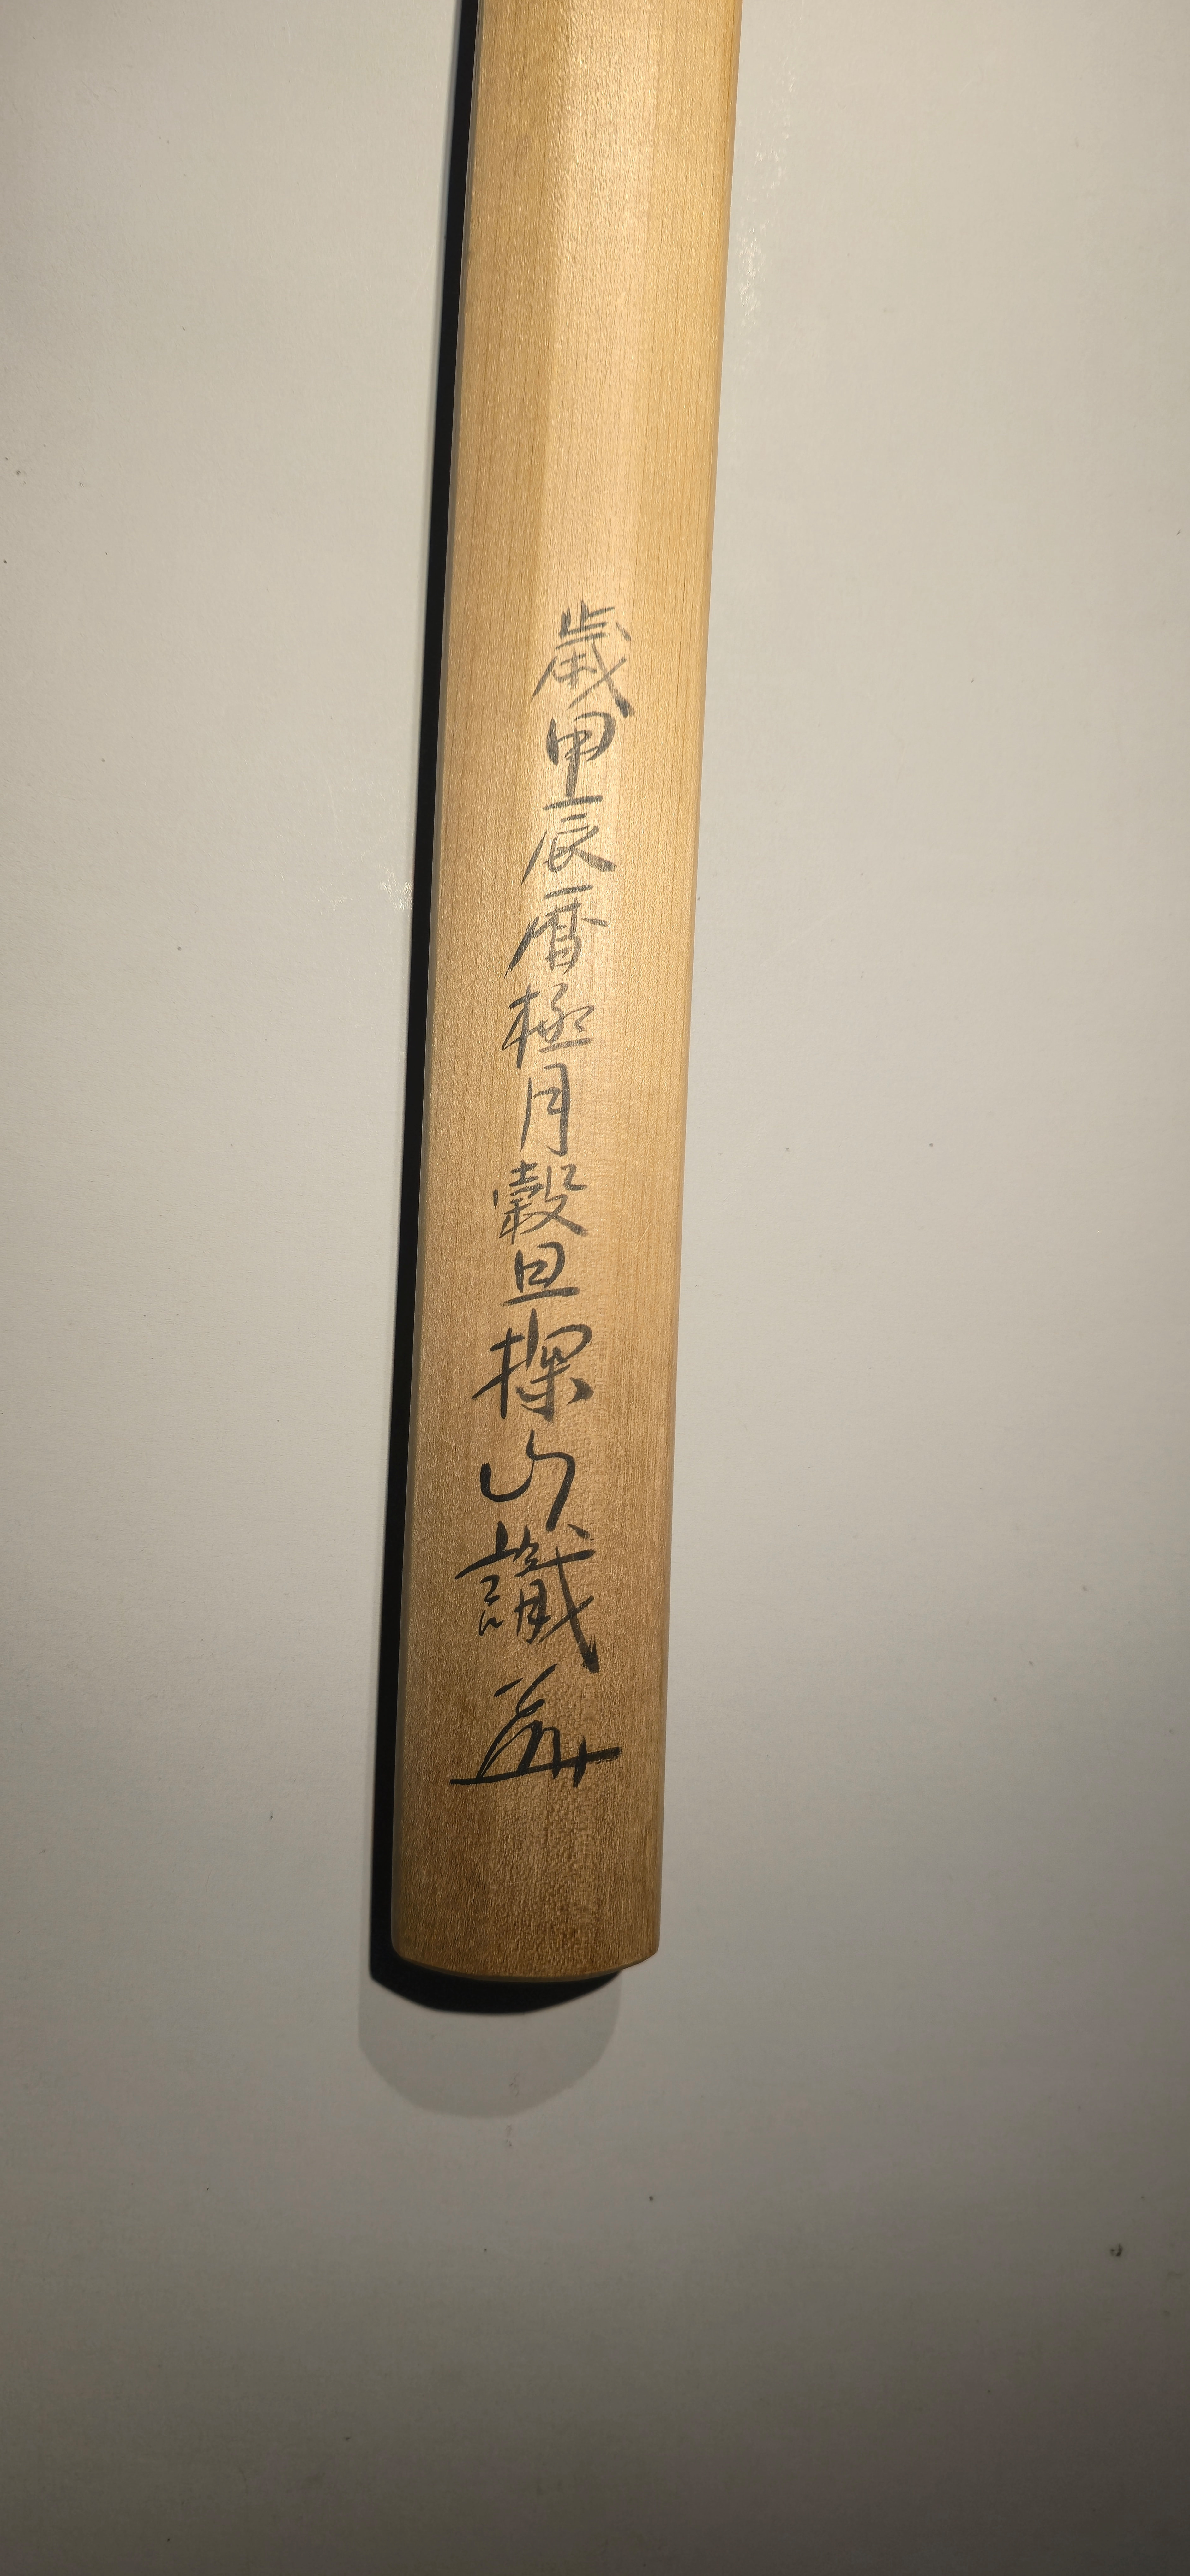 歳甲辰暦極月穀旦探山識